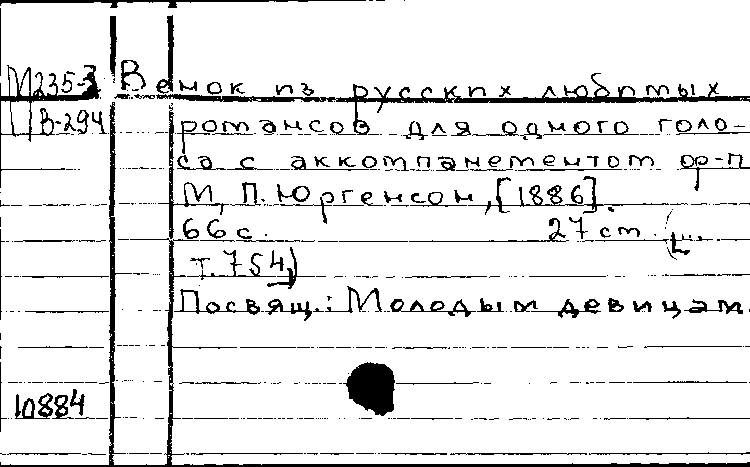 М235-3 Венок из русских любимых
В-294 романсов для одного голо-
са с аккомпанементом ф-п
М, П. Юргенсон, [1886].
66 с. 27 см.
т. 754)
Посвящ.: Молодым девицам.
10884